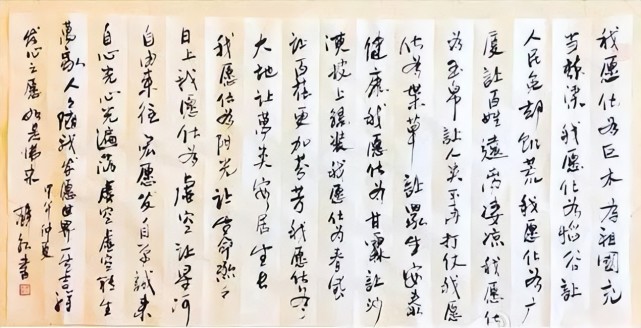 我愿化为巨木 为祖國充
当栋梁 我愿化为稻谷 让
人民免却饥荒 我愿化为广
厦让百姓遠离凄凉 我愿化
为玉帛 让人类不再打仗 我愿
化为药草 让众生安泰
健康 我愿化为甘霖 让沙
漠披上绿装 我愿化为春风
让百花更加芬芳 我愿化为
大地 让万类安居生长
我愿化为阳光 让生命
日上 我愿化为虚空 让星河
自由来往 宏愿发自 诚来
自心光 心光遍 虚空 虚空转生
萬 人人随我本愿 世界一 吉祥
发心之愿 如是佛来
甲午仲夏